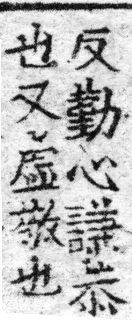 反勤心謙恭
也又虛敬也